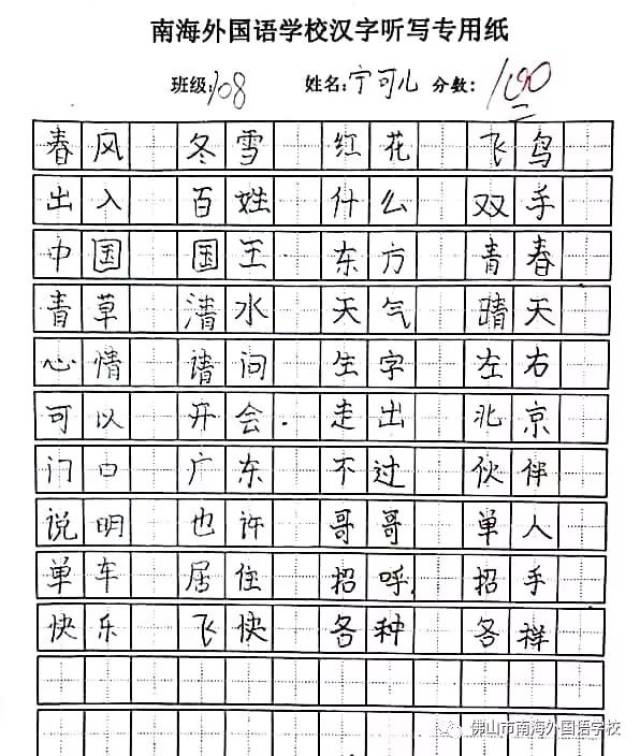 南海外国语学校汉字听写专用纸
班级:108 姓名:宁可儿 分数:100
春风 冬雪 红花 飞鸟
出入 百姓 什么 双手
中国 国王 东方 青春
青草 清水 天气 晴天
心情 请问 生字 左右
可以 开会 走出 北京
门口 广东 不过 伙伴
说明 也许 哥哥 单人
单车 居住 招呼 招手
快乐 飞快 各种 各样
佛山市南海外国语学校